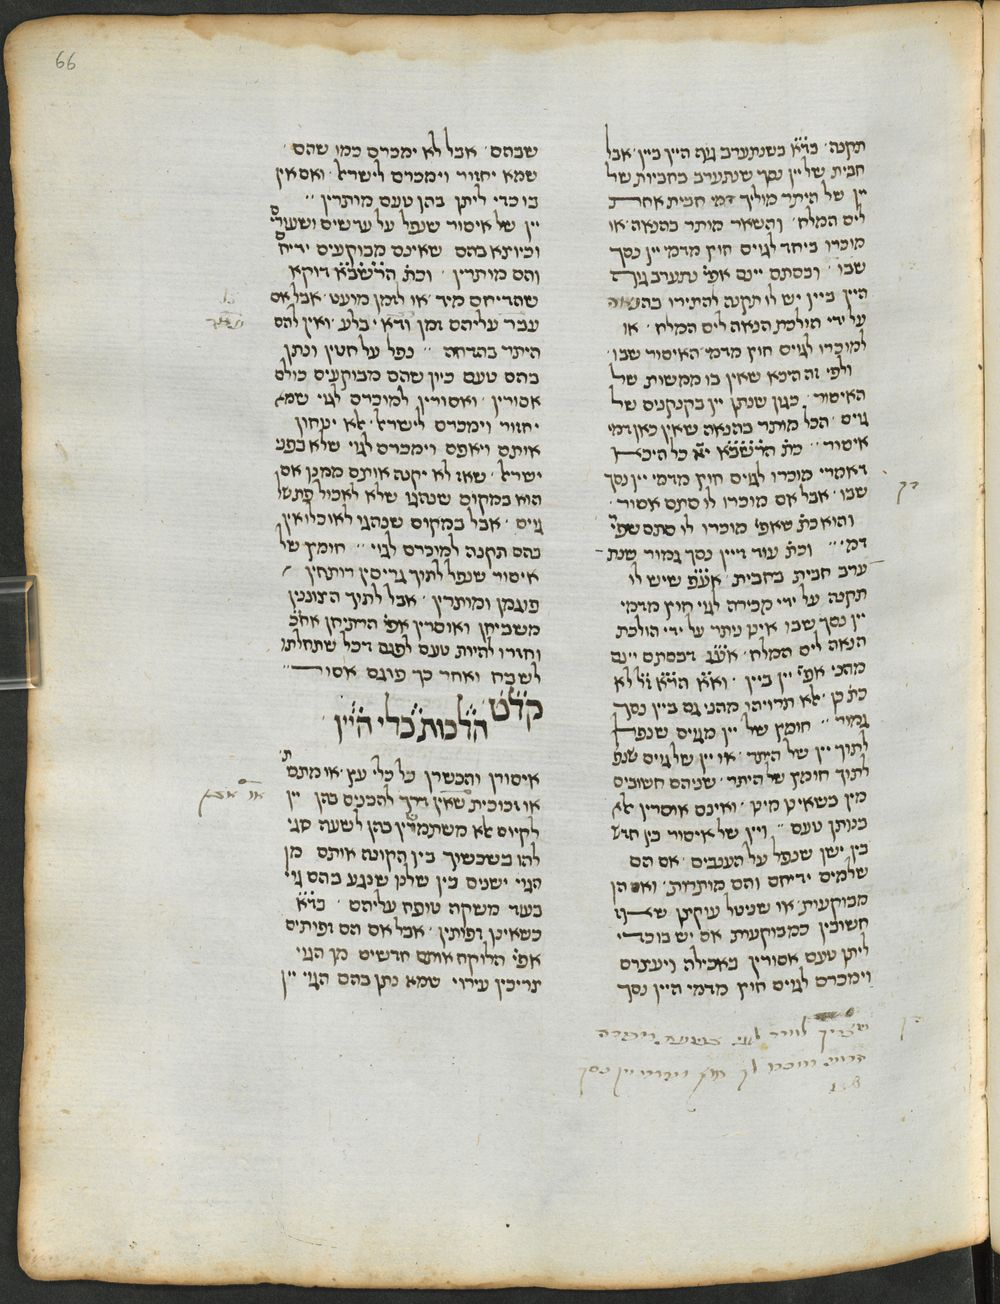 66
תקנה׳ בד״א כשנתערב גוף היין ביין׳ אבל
חבית של יין נסך שנתערב בחביות של
יין של היתר מוליך דמי חבית אחת
לים המלח׳ והשאר מותר בהנאה׳ או
מוכרו ביחד לגוים חוץ מדמי יין נסך
שבו׳ ובסתם יינם אפי׳ נתערב גוף
היין ביין יש לו תקנה להתירו בהנאה
על ידי הולכת הנאה לים המלח׳ או
למוכרו לגוים חוץ מדמי האיסור שבו׳
ולפי זה היכא שאין בו ממשות של
האיסור׳ כגון שנתן יין בקנקנים של
גוים׳ הכל מותר בהנאה שאין כאן דמי
איסור׳׳ כת׳ הרשב״א ז״ל כל היכא
דאמרי׳ מוכרו לגוים חוץ מדמי יין נסך
שבו׳ אבל אם מוכרו לו סתם אסור׳
והוא כת׳ שאפי׳ מוכרו לו סתם שפי׳
דמי׳׳ וכת׳ עוד דיין נסך גמור שנת
ערב חבית בחבית׳ אע״פ שיש לו
תקנה על ידי מכירה לגוי חוץ מדמי
יין נסך שבו אינו ניתר על ידי הולכת
הנאה לים המלח׳ אע״ג דבסתם יינם
מהני אפי׳ יין ביין׳ וא״א הרא״ש ז״ל לא
כת׳ כן׳ אלא תרויהו מהני גם ביין נסך
גמור׳׳ חומץ של יין מגוים שנפל
לתוך יין של היתר׳ או יין של גוים שנפל
לתוך חומץ של היתר׳ שניהם חשובים
מין בשאינו מינו׳ ואינם אוסרין אלא
בנותן טעם׳׳ ויין של איסור בין חדש
בין ישן שנפל על הענבים׳ אם הם
שלמים ידיחם והם מותרות׳ ואם הן
מבוקעות׳ או שניטל עוקצן שאנו
חשובין כמבוקעות׳ אם יש בו כדי
ליתן טעם אסורין באכילה ויעתרם
וימכרם לגוים חוץ מדמי היין נסך
שבהם׳ אבל לא ימכרם כמו שהם׳
שמא יחזור וימכרם לישראל׳ ואם אין
בו כדי ליתן בהן טעם מותרין׳׳
יין של איסור שנפל על עדשים ושעורים
וכיוצא בהם שאינם מבוקעים ידיחם
והם מותרין׳ וכת׳ הרשב״א דוקא
שהדיחם מיד׳ או לזמן מועט׳ אבל אם
עבר עליהם זמן ודאי בלע׳ ואין להם
היתר בהדחה׳׳ נפל על חטין ונתן
בהם טעם כיון שהם מבוקעים כולם
אסורין׳ ואסורין למוכרם לגוי שמא
יחזור וימכרם לישראל׳ אלא יטחון
אותם ויאפם וימכרם לגוי שלא בפני
ישראל׳ שאז לא יקנה אותם ממנו אם
הוא במקום שנהגו שלא לאכול פתשל
גוים׳ אבל במקום שנהגו לאוכלו אין
בהם תקנה למוכרם לגוי׳׳ חומץ של
איסור שנפל לתוך גריסין רותחין
פוגמן ומותרין׳ אבל לתוך הצוננין
משביחן ואוסרין אפי׳ הרתיחן אח״כ
וחזרו להיות טעם לפגם דכל שתחלתו
לשבח ואחר כך פוגם אסור׳׳
קל״ט הלכות כלי היין
איסורן והכשרן כל כלי עץ׳ או מתכת
או זכוכית שאין דרך להכניס בהן יין
לקיום אלא משתמשין בהן לשעה סגי
להו בשכשוך בין הקונה אותם מן
הגוי ישנים בין שלנו שנגע בהם גוי
בעוד משקה טופח עליהם׳ בד״א
כשאינן זפותין׳ אבל אם הם זפותים
אפי׳ הלוקח אותם חדשים מן הגוי
צריכין עירוי שמא נתן בהם הגוי יין